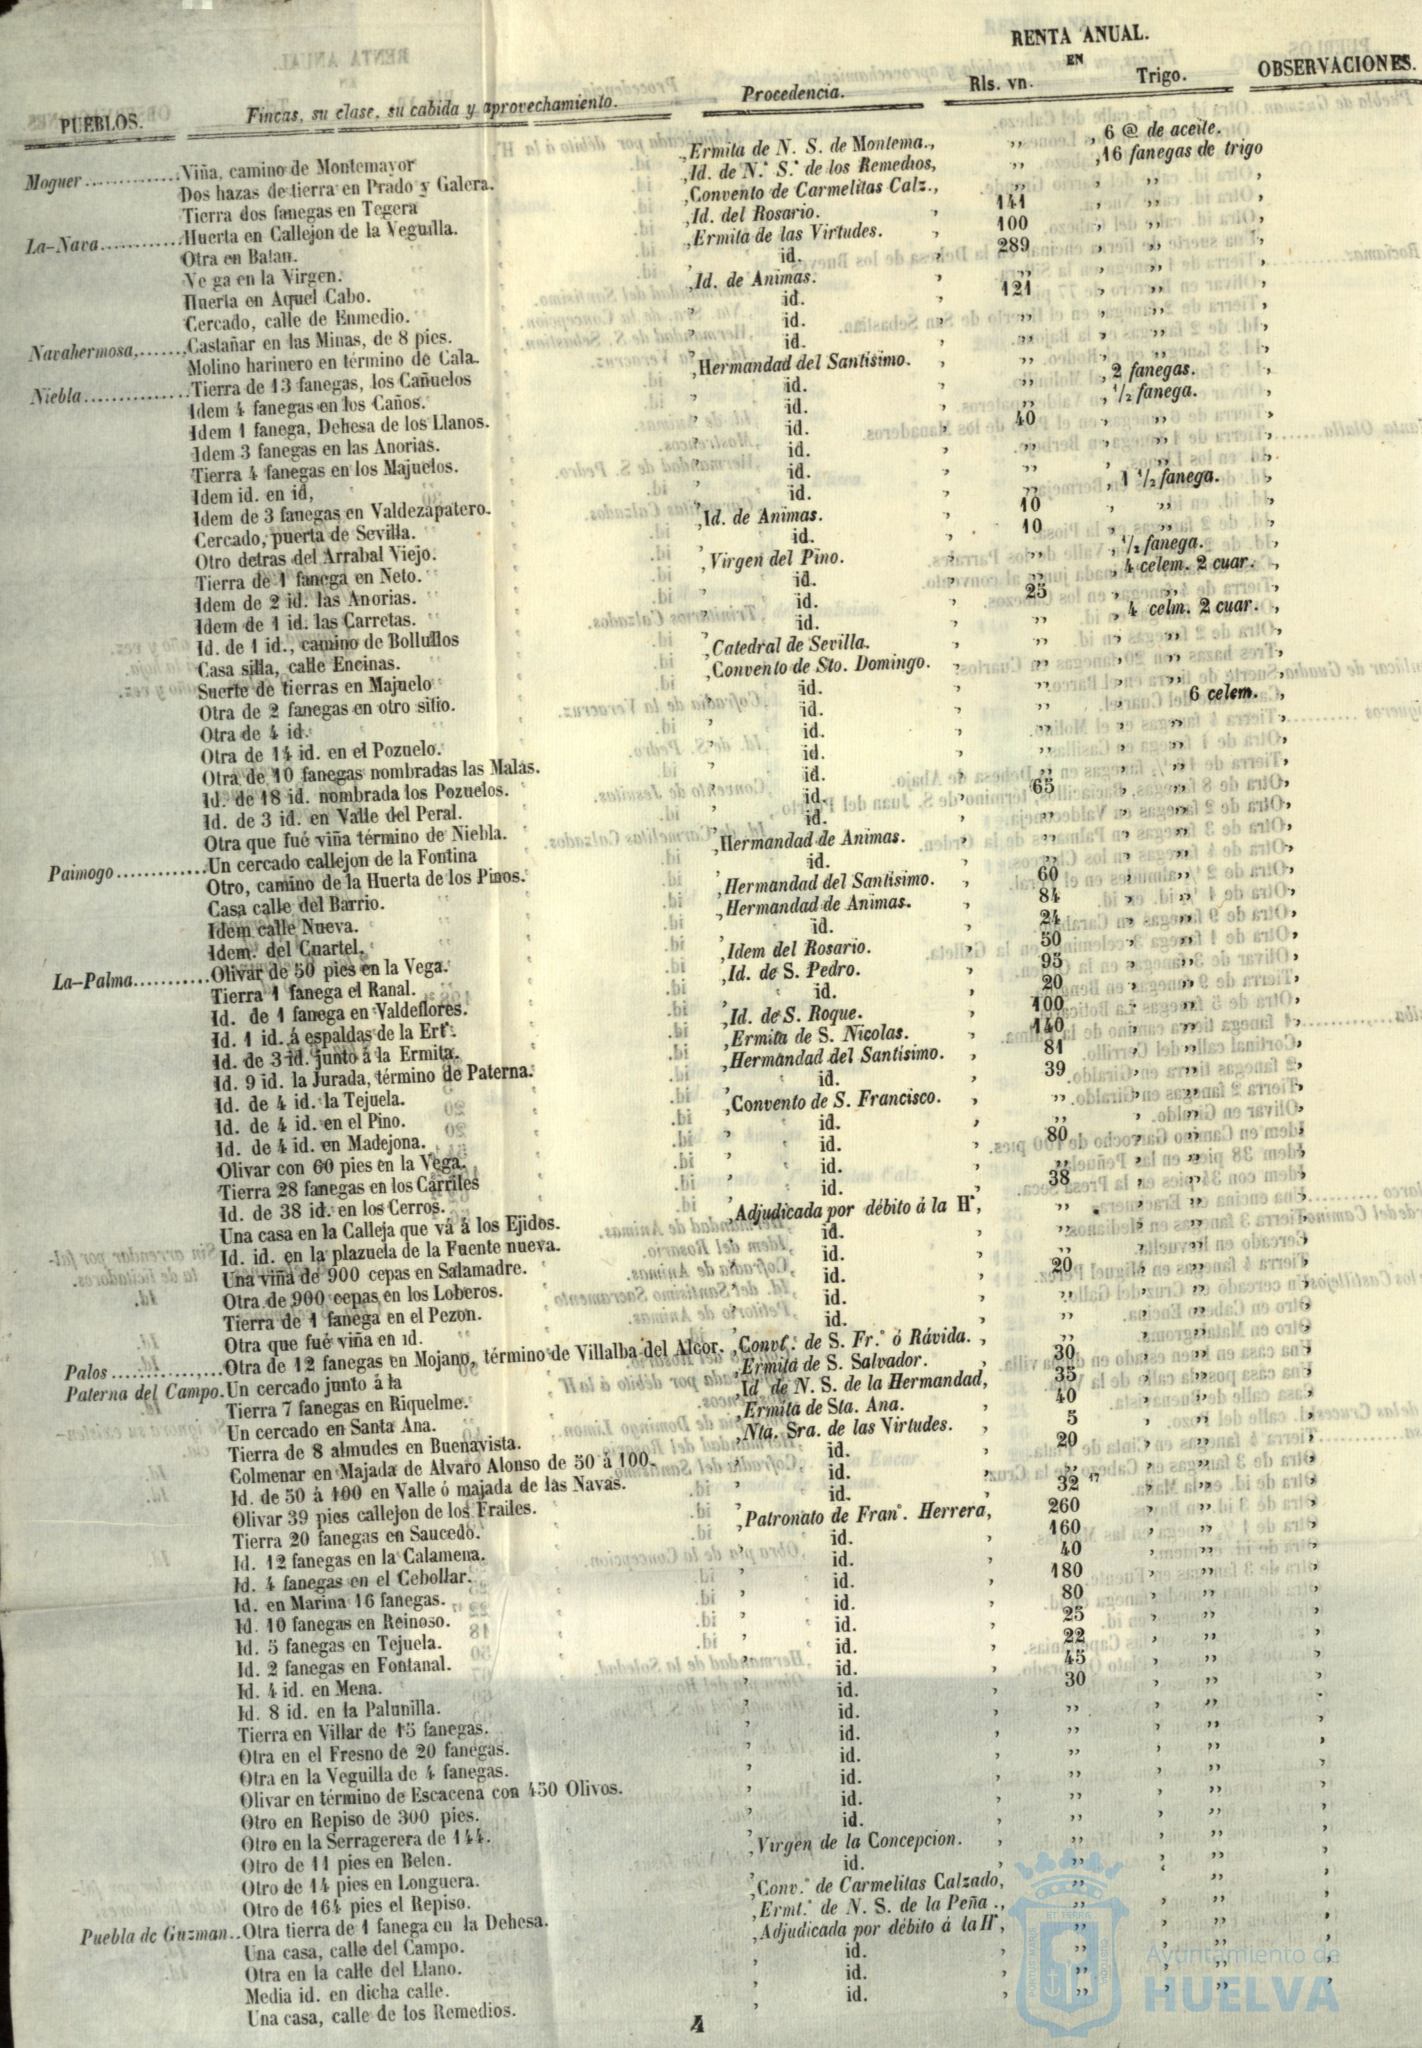 PUEBLOS. Fincas, su clase, su cabida y aprovechamiento. Procedencia. RENTA ANUAL. EN Rls. vn. Trigo. OBSERVACIONES.
Moguer.............Viña, camino de Montemayor ,Ermita de N. S. de Montema., ,, , 6 @ de aceite.
Dos hazas de tierra en Prado y Galera. ,Id. de N.ª S.ª de los Remedios, ,, ,16 fanegas de trigo
Tierra dos fanegas en Tegera ,Convento de Carmelitas Calz., ,, , ,, ,
La-Nava...........Huerta en Callejon de la Veguilla. ,Id. del Rosario. , 141 , ,, ,
Otra en Balan. ,Ermita de las Virtudes. , 100 , ,, ,
Vega en la Virgen. , id. , 289 , ,, ,
Huerta en Aquel Cabo. ,Id. de Animas. , ,, , ,, ,
Cercado, calle de Enmedio. , id. , 121 , ,, ,
Navahermosa,......,Castañar en las Minas, de 8 pies. , id. , ,, , ,, ,
Molino harinero en término de Cala. , id. , ,, , ,, ,
Niebla..............Tierra de 13 fanegas, los Cañuelos ,Hermandad del Santisimo. , ,, , ,, ,
Idem 4 fanegas en los Caños. , id. , ,, , 2 fanegas. ,
Idem 1 fanega, Dehesa de los Llanos. , id. , ,, , 1/2 fanega. ,
Idem 3 fanegas en las Anorias. , id. , 40 , ,, ,
Tierra 4 fanegas en los Majuelos. , id. , ,, , ,, ,
Idem id. en id, , id. , ,, , ,, ,
Idem de 3 fanegas en Valdezapatero. , id. , ,, , 1 1/2 fanega. ,
Cercado, puerta de Sevilla. ,Id. de Animas. , 10 , ,, ,
Otro detras del Arrabal Viejo. , id. , 10 , ,, ,
Tierra de 1 fanega en Neto. ,Virgen del Pino. , ,, , 1/2 fanega. ,
Idem de 2 id. las Anorias. , id. , ,, , 4 celem. 2 cuar. ,
Idem de 1 id. las Carretas. , id. , 25 , ,, ,
Id. de 1 id., camino de Bollullos , id. , ,, , 4 celm. 2 cuar. ,
Casa silla, calle Encinas. ,Catedral de Sevilla. , ,, , ,, ,
Suerte de tierras en Majuelo ,Convento de Sto. Domingo. , ,, , ,, ,
Otra de 2 fanegas en otro sitio. , id. , ,, , ,, ,
Otra de 4 id. , id. , ,, , 6 celem. ,
Otra de 14 id. en el Pozuelo. , id. , ,, , ,, ,
Otra de 10 fanegas nombradas las Malas. , id. , ,, , ,, ,
Id. de 18 id. nombrada los Pozuelos. , id. , ,, , ,, ,
Id. de 3 id. en Valle del Peral. , id. , 65 , ,, ,
Otra que fué viña término de Niebla. , id. , ,, , ,, ,
Paimogo............Un cercado callejon de la Fontina ,Hermandad de Animas. , ,, , ,, ,
Otro, camino de la Huerta de los Pinos. , id. , ,, , ,, ,
Casa calle del Barrio. ,Hermandad del Santisimo. , 60 , ,, ,
Idem calle Nueva. ,Hermandad de Animas. , 84 , ,, ,
Idem. del Cuartel. , id. , 24 , ,, ,
La-Palma...........Olivar de 50 pies en la Vega. ,Idem del Rosario. , 50 , ,, ,
Tierra 1 fanega el Ranal. ,Id. de S. Pedro. , 95 , ,, ,
Id. de 1 fanega en Valdeflores. , id. , 20 , ,, ,
Id. 1 id. á espaldas de la Erª. ,Id. de S. Roque. , 100 , ,, ,
Id. de 3 id. junto á la Ermita. ,Ermita de S. Nicolas. , 140 , ,, ,
Id. 9 id. la Jurada, término de Paterna. ,Hermandad del Santisimo. , 81 , ,, ,
Id. de 4 id. la Tejuela. , id. , 39 , ,, ,
Id. de 4 id. en el Pino. ,Convento de S. Francisco. , ,, , ,, ,
Id. de 4 id. en Madejona. , id. , ,, , ,, ,
Olivar con 60 pies en la Vega. , id. , 80 , ,, ,
Tierra 28 fanegas en los Carriles , id. , ,, , ,, ,
Id. de 38 id. en los Cerros. , id. , 38 , ,, ,
Una casa en la Calleja que vá á los Ejidos. ,Adjudicada por débito á la Hª, ,, , ,, ,
Id. id. en la plazuela de la Fuente nueva. , id. , ,, , ,, ,
Una viña de 900 cepas en Salamadre. , id. , ,, , ,, ,
Otra de 900 cepas en los Loberos. , id. , 20 , ,, ,
Tierra de 1 fanega en el Pezon. , id. , ,, , ,, ,
Otra que fué viña en id. , id. , ,, , ,, ,
Palos...............Otra de 12 fanegas en Mojano, término de Villalba del Alcor. ,Convt.º de S. Fr.º ó Rávida. , ,, , ,, ,
Paterna del Campo.Un cercado junto á la ,Ermita de S. Salvador. , 30 , ,, ,
Tierra 7 fanegas en Riquelme. ,Id de N. S. de la Hermandad, 35 , ,, ,
Un cercado en Santa Ana. ,Ermita de Sta. Ana. , 40 , ,, ,
Tierra de 8 almudes en Buenavista. ,Nta. Sra. de las Virtudes. , 5 , ,, ,
Colmenar en Majada de Alvaro Alonso de 50 á 100. , id. , 20 , ,, ,
Id. de 50 á 100 en Valle ó majada de las Navas. , id. , ,, , ,, ,
Olivar 39 pies callejon de los Frailes. , id. , 32 17 , ,, ,
Tierra 20 fanegas en Saucedo. ,Patronato de Franº. Herrera, 260 , ,, ,
Id. 12 fanegas en la Calamena. , id. , 160 , ,, ,
Id. 4 fanegas en el Cebollar. , id. , 40 , ,, ,
Id. en Marina 16 fanegas. , id. , 180 , ,, ,
Id. 10 fanegas en Reinoso. , id. , 80 , ,, ,
Id. 5 fanegas en Tejuela. , id. , 25 , ,, ,
Id. 2 fanegas en Fontanal. , id. , 22 , ,, ,
Id. 4 id. en Mena. , id. , 45 , ,, ,
Id. 8 id. en la Palunilla. , id. , 30 , ,, ,
Tierra en Villar de 15 fanegas. , id. , ,, , ,, ,
Otra en el Fresno de 20 fanegas. , id. , ,, , ,, ,
Otra en la Veguilla de 4 fanegas. , id. , ,, , ,, ,
Olivar en término de Escacena con 450 Olivos. , id. , ,, , ,, ,
Otro en Repiso de 300 pies. , id. , ,, , ,, ,
Otro en la Serragerera de 144. , id. , ,, , ,, ,
Otro de 11 pies en Belen. ,Virgen de la Concepcion. , ,, , ,, ,
Otro de 14 pies en Longuera. , id. , ,, , ,, ,
Otro de 164 pies el Repiso. ,Conv.º de Carmelitas Calzado, ,, , ,, ,
Puebla de Guzman..Otra tierra de 1 fanega en la Dehesa. ,Ermt.ª de N. S. de la Peña ., ,, , ,, ,
Una casa, calle del Campo. ,Adjudicada por débito á la Hª, ,, , ,, ,
Otra en la calle del Llano. , id. , ,, , ,, ,
Media id. en dicha calle. , id. , ,, , ,, ,
Una casa, calle de los Remedios. , id. , ,, , ,, ,
4
Ayuntamiento de
HUELVA